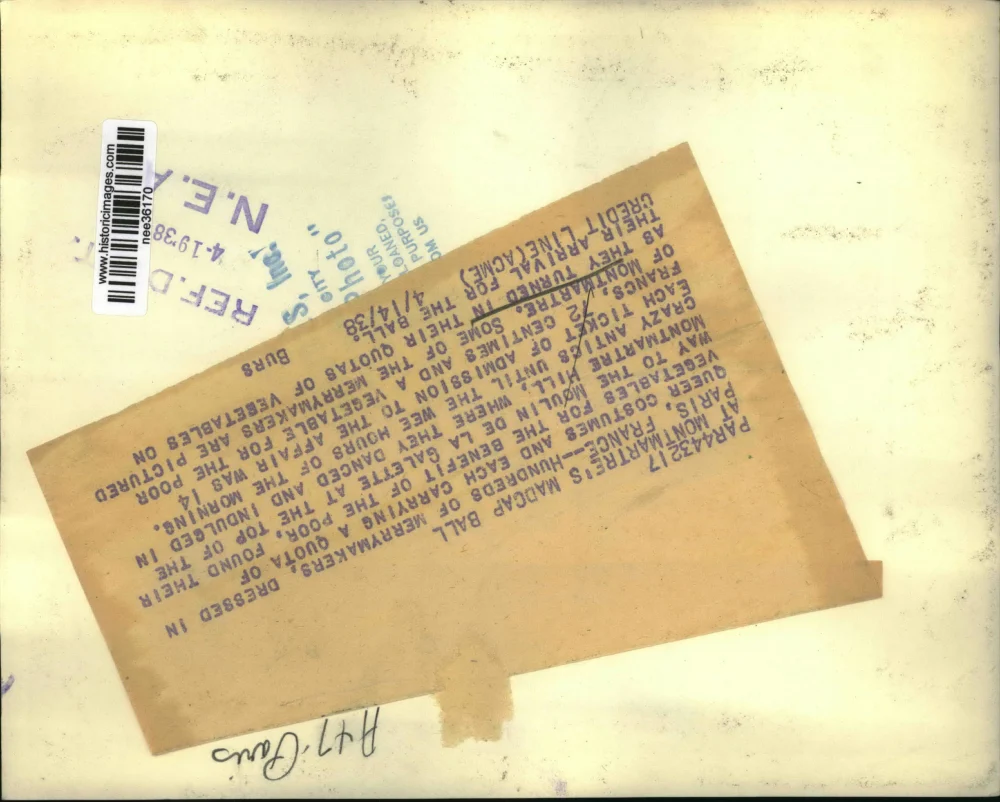 PAR443217
AT MONTMARTRE'S MADCAP BALL
PARIS, FRANCE--HUNDREDS OF MERRYMAKERS, DRESSED IN
QUEER COSTUMES AND EACH CARRYING A QUOTA OF
VEGETABLES FOR THE BENEFIT OF THE POOR, FOUND THEIR
WAY TO THE MOULIN DE LA GALETTE AT THE TOP OF THE
MONTMARTRE HILL, WHERE THEY DANCED AND INDULGED IN
CRAZY ANTICS UNTIL THE WEE HOURS OF THE MORNING.
EACH TICKET OF ADMISSION TO THE AFFAIR WAS 14
FRANCS, 2 CENTIMES AND A VEGETABLE FOR THE POOR
OF MONTMARTRE. SOME OF THE MERRYMAKERS ARE PICTURED
AS THEY TURNED IN THEIR QUOTAS OF VEGETABLES ON
THEIR ARRIVAL FOR THE BALL.
CREDIT LINE(ACME) 4/14/38 BURS
A47 Paris
REF. D
4-19'38
N.E.A
www.historicimages.com
nee36170